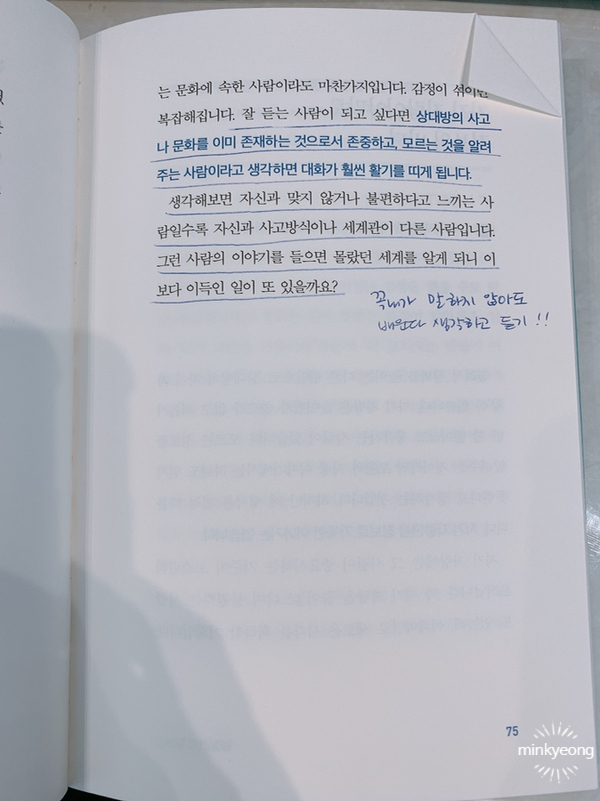 는 문화에 속한 사람이라도 마찬가지입니다. 감정이 섞이면
복잡해집니다. 잘 듣는 사람이 되고 싶다면 상대방의 사고
나 문화를 이미 존재하는 것으로서 존중하고, 모르는 것을 알려
주는 사람이라고 생각하면 대화가 훨씬 활기를 띠게 됩니다.
생각해보면 자신과 맞지 않거나 불편하다고 느끼는 사
람일수록 자신과 사고방식이나 세계관이 다른 사람입니다.
그런 사람의 이야기를 들으면 몰랐던 세계를 알게 되니 이
보다 이득인 일이 또 있을까요?
꼭 내가 말하지 않아도
배운다 생각하고 듣기 !!
75
minkyeong